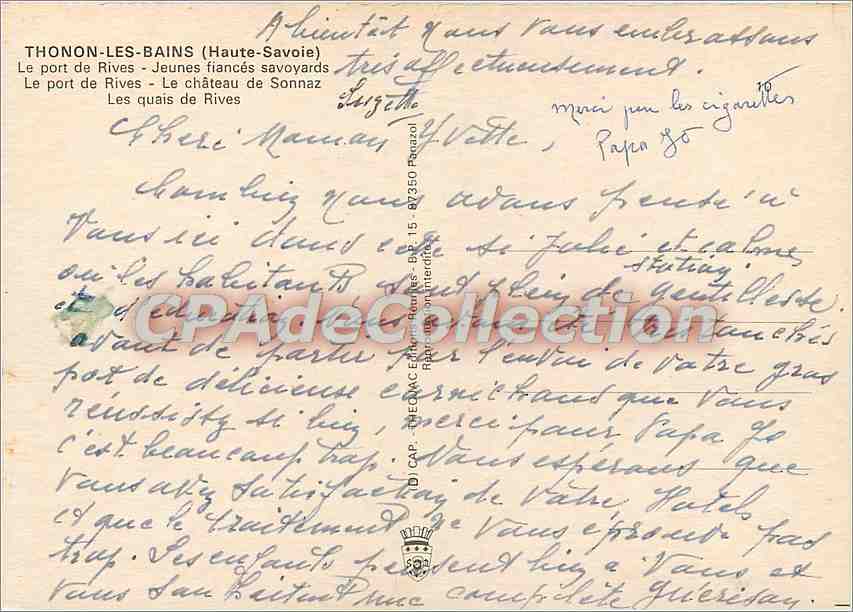 A bientôt nous vous embrassons
très affectueusement.
Suzette
THONON-LES-BAINS (Haute-Savoie)
Le port de Rives - Jeunes fiancés savoyards
Le port de Rives - Le château de Sonnaz
Les quais de Rives
Merci pour les cigarettes
Papa Jo
Cheri Maman Yvette,
Combien nous avons pensé à
Vous ici dans cette si Jolie et calme
station
où les habitants sont plein de gentillesse.
et d'éducation. Nous avons été
avant de partir par l'envoi de votre gros
pot de délicieuse cornichons que vous
réussissez si bien, merci pour Papa Jo
c'est beaucoup trop. Nous espérons que
vous avez satisfaction de votre Hotels
et que le traitement ne vous éprouve pas
trop. Les enfants pensent bien à vous et
vous souhaitent une complète guérison.
(D) CAP. - THEOJAC Editions Réunies - B.P. 15 - 87350 Panazol
Reproduction interdite
CPAdeCollection